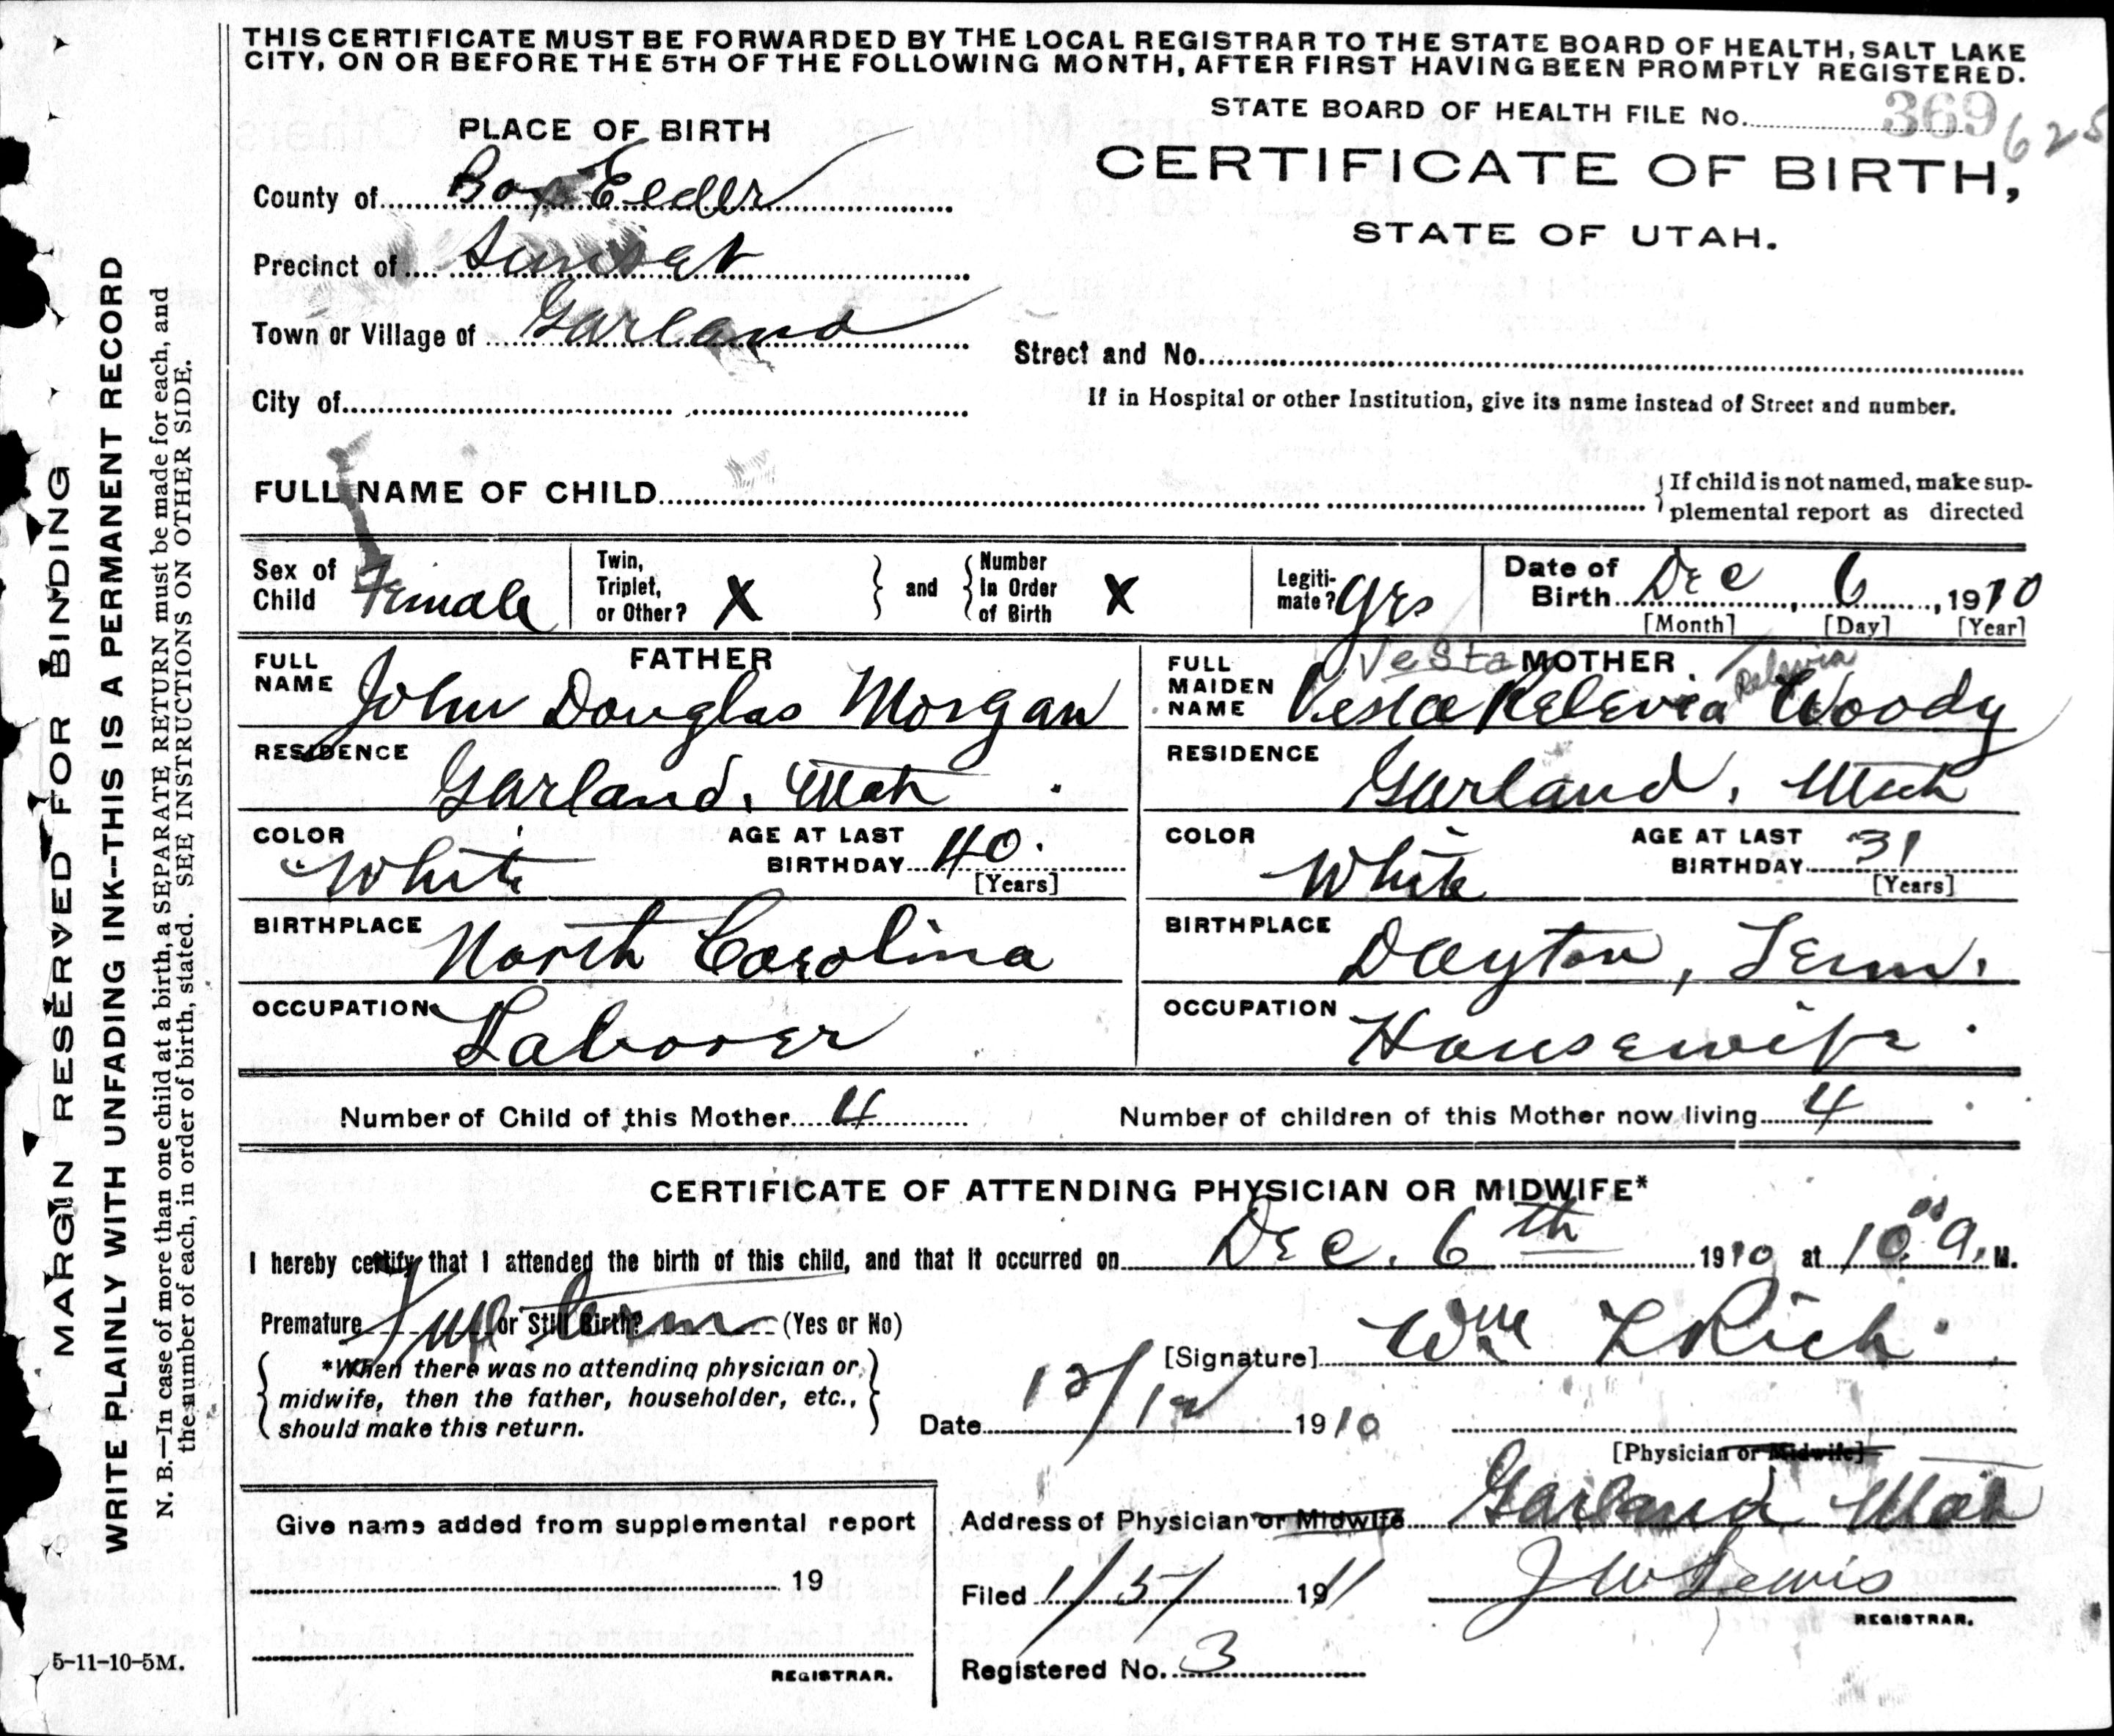 THIS CERTIFICATE MUST BE FORWARDED BY THE LOCAL REGISTRAR TO THE STATE BOARD OF HEALTH, SALT LAKE
CITY, ON OR BEFORE THE 5TH OF THE FOLLOWING MONTH, AFTER FIRST HAVING BEEN PROMPTLY REGISTERED.
STATE BOARD OF HEALTH FILE No. 369 625
PLACE OF BIRTH
CERTIFICATE OF BIRTH,
STATE OF UTAH.
County of Box Elder
Precinct of Sunset
Town or Village of Garland
Street and No.
City of
If in Hospital or other Institution, give its name instead of Street and number.
FULL NAME OF CHILD
{If child is not named, make sup-
plemental report as directed
Sex of
Child Female
Twin,
Triplet,
or Other? X
} and {
Number
In Order
of Birth X
Legiti-
mate? yes
Date of
Birth Dec 6, 1910
[Month] [Day] [Year]
FATHER
FULL
NAME John Douglas Morgan
RESIDENCE
Garland, Utah
COLOR White
AGE AT LAST
BIRTHDAY 40.
[Years]
BIRTHPLACE North Carolina
OCCUPATION Laborer
Vesta MOTHER Relevia
FULL
MAIDEN
NAME Vesta Relevia Woody
RESIDENCE
Garland, Utah
COLOR White
AGE AT LAST
BIRTHDAY 31
[Years]
BIRTHPLACE Dayton, Tenn.
OCCUPATION Housewife
Number of Child of this Mother 4
Number of children of this Mother now living 4
CERTIFICATE OF ATTENDING PHYSICIAN OR MIDWIFE*
I hereby certify that I attended the birth of this child, and that it occurred on Dec. 6th 1910 at 10 00 a. M.
Premature or Still Birth? (Yes or No)
Full term
*When there was no attending physician or
midwife, then the father, householder, etc.,
should make this return.
[Signature] Wm L Rich
Date 12/12 1910
[Physician or Midwife]
Address of Physician or Midwife Garland Utah
Give name added from supplemental report
19
REGISTRAR.
Filed 1/5/ 1911
J W Lewis
REGISTRAR.
Registered No. 3
MARGIN RESERVED FOR BINDING
WRITE PLAINLY WITH UNFADING INK--THIS IS A PERMANENT RECORD
N. B.—In case of more than one child at a birth, a SEPARATE RETURN must be made for each, and
the number of each, in order of birth, stated. SEE INSTRUCTIONS ON OTHER SIDE.
5-11-10-5M.